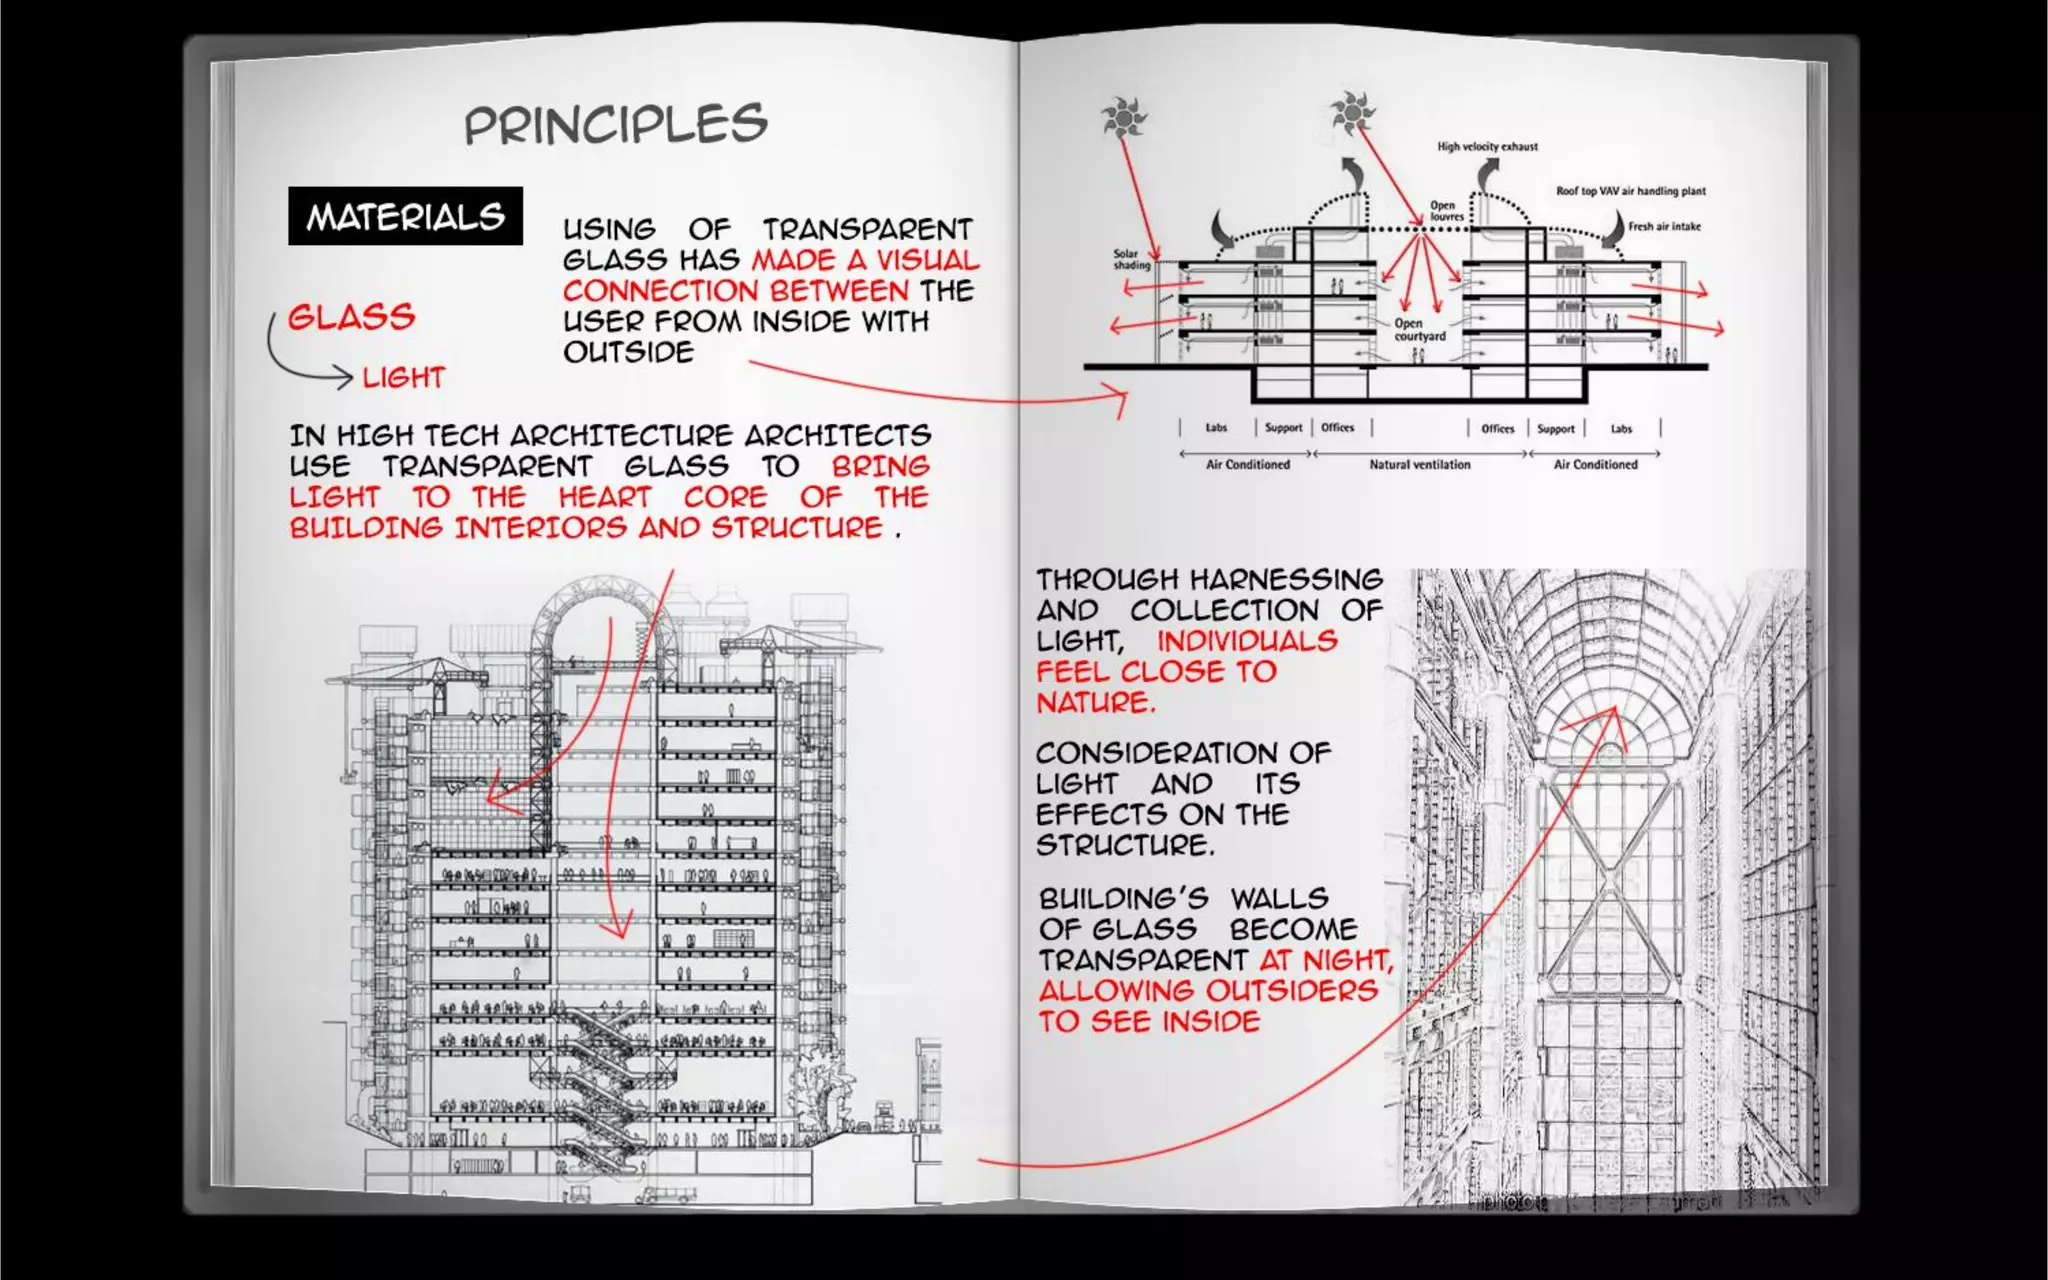 PRINCIPLES
MATERIALS
USING OF TRANSPARENT
GLASS HAS MADE A VISUAL
CONNECTION BETWEEN THE
USER FROM INSIDE WITH
OUTSIDE
GLASS
LIGHT
IN HIGH TECH ARCHITECTURE ARCHITECTS
USE TRANSPARENT GLASS TO BRING
LIGHT TO THE HEART CORE OF THE
BUILDING INTERIORS AND STRUCTURE .
High velocity exhaust
Roof top VAV air handling plant
Open
louvres
Fresh air intake
Solar
shading
Open
courtyard
Labs Support Offices Offices Support Labs
Air Conditioned Natural ventilation Air Conditioned
THROUGH HARNESSING
AND COLLECTION OF
LIGHT, INDIVIDUALS
FEEL CLOSE TO
NATURE.
CONSIDERATION OF
LIGHT AND ITS
EFFECTS ON THE
STRUCTURE.
BUILDING'S WALLS
OF GLASS BECOME
TRANSPARENT AT NIGHT,
ALLOWING OUTSIDERS
TO SEE INSIDE